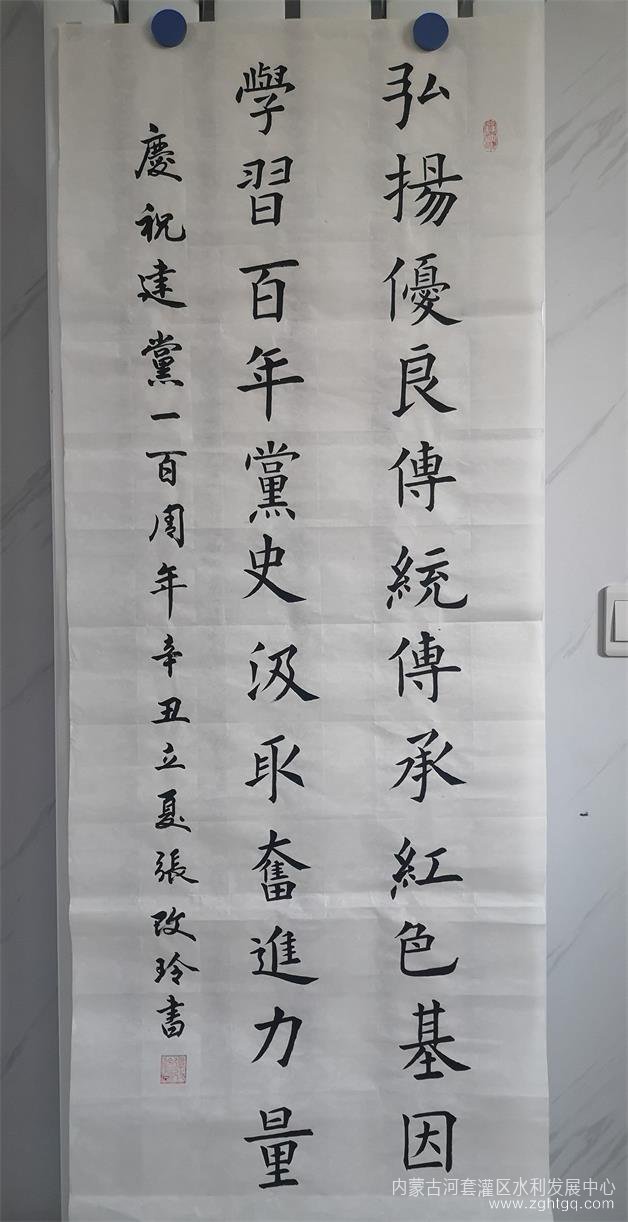 弘揚優良傳統傳承紅色基因
學習百年黨史汲取奮進力量
慶祝建黨一百周年辛丑立夏張改玲書
内蒙古河套灌区水利发展中心
www.zghtgq.com